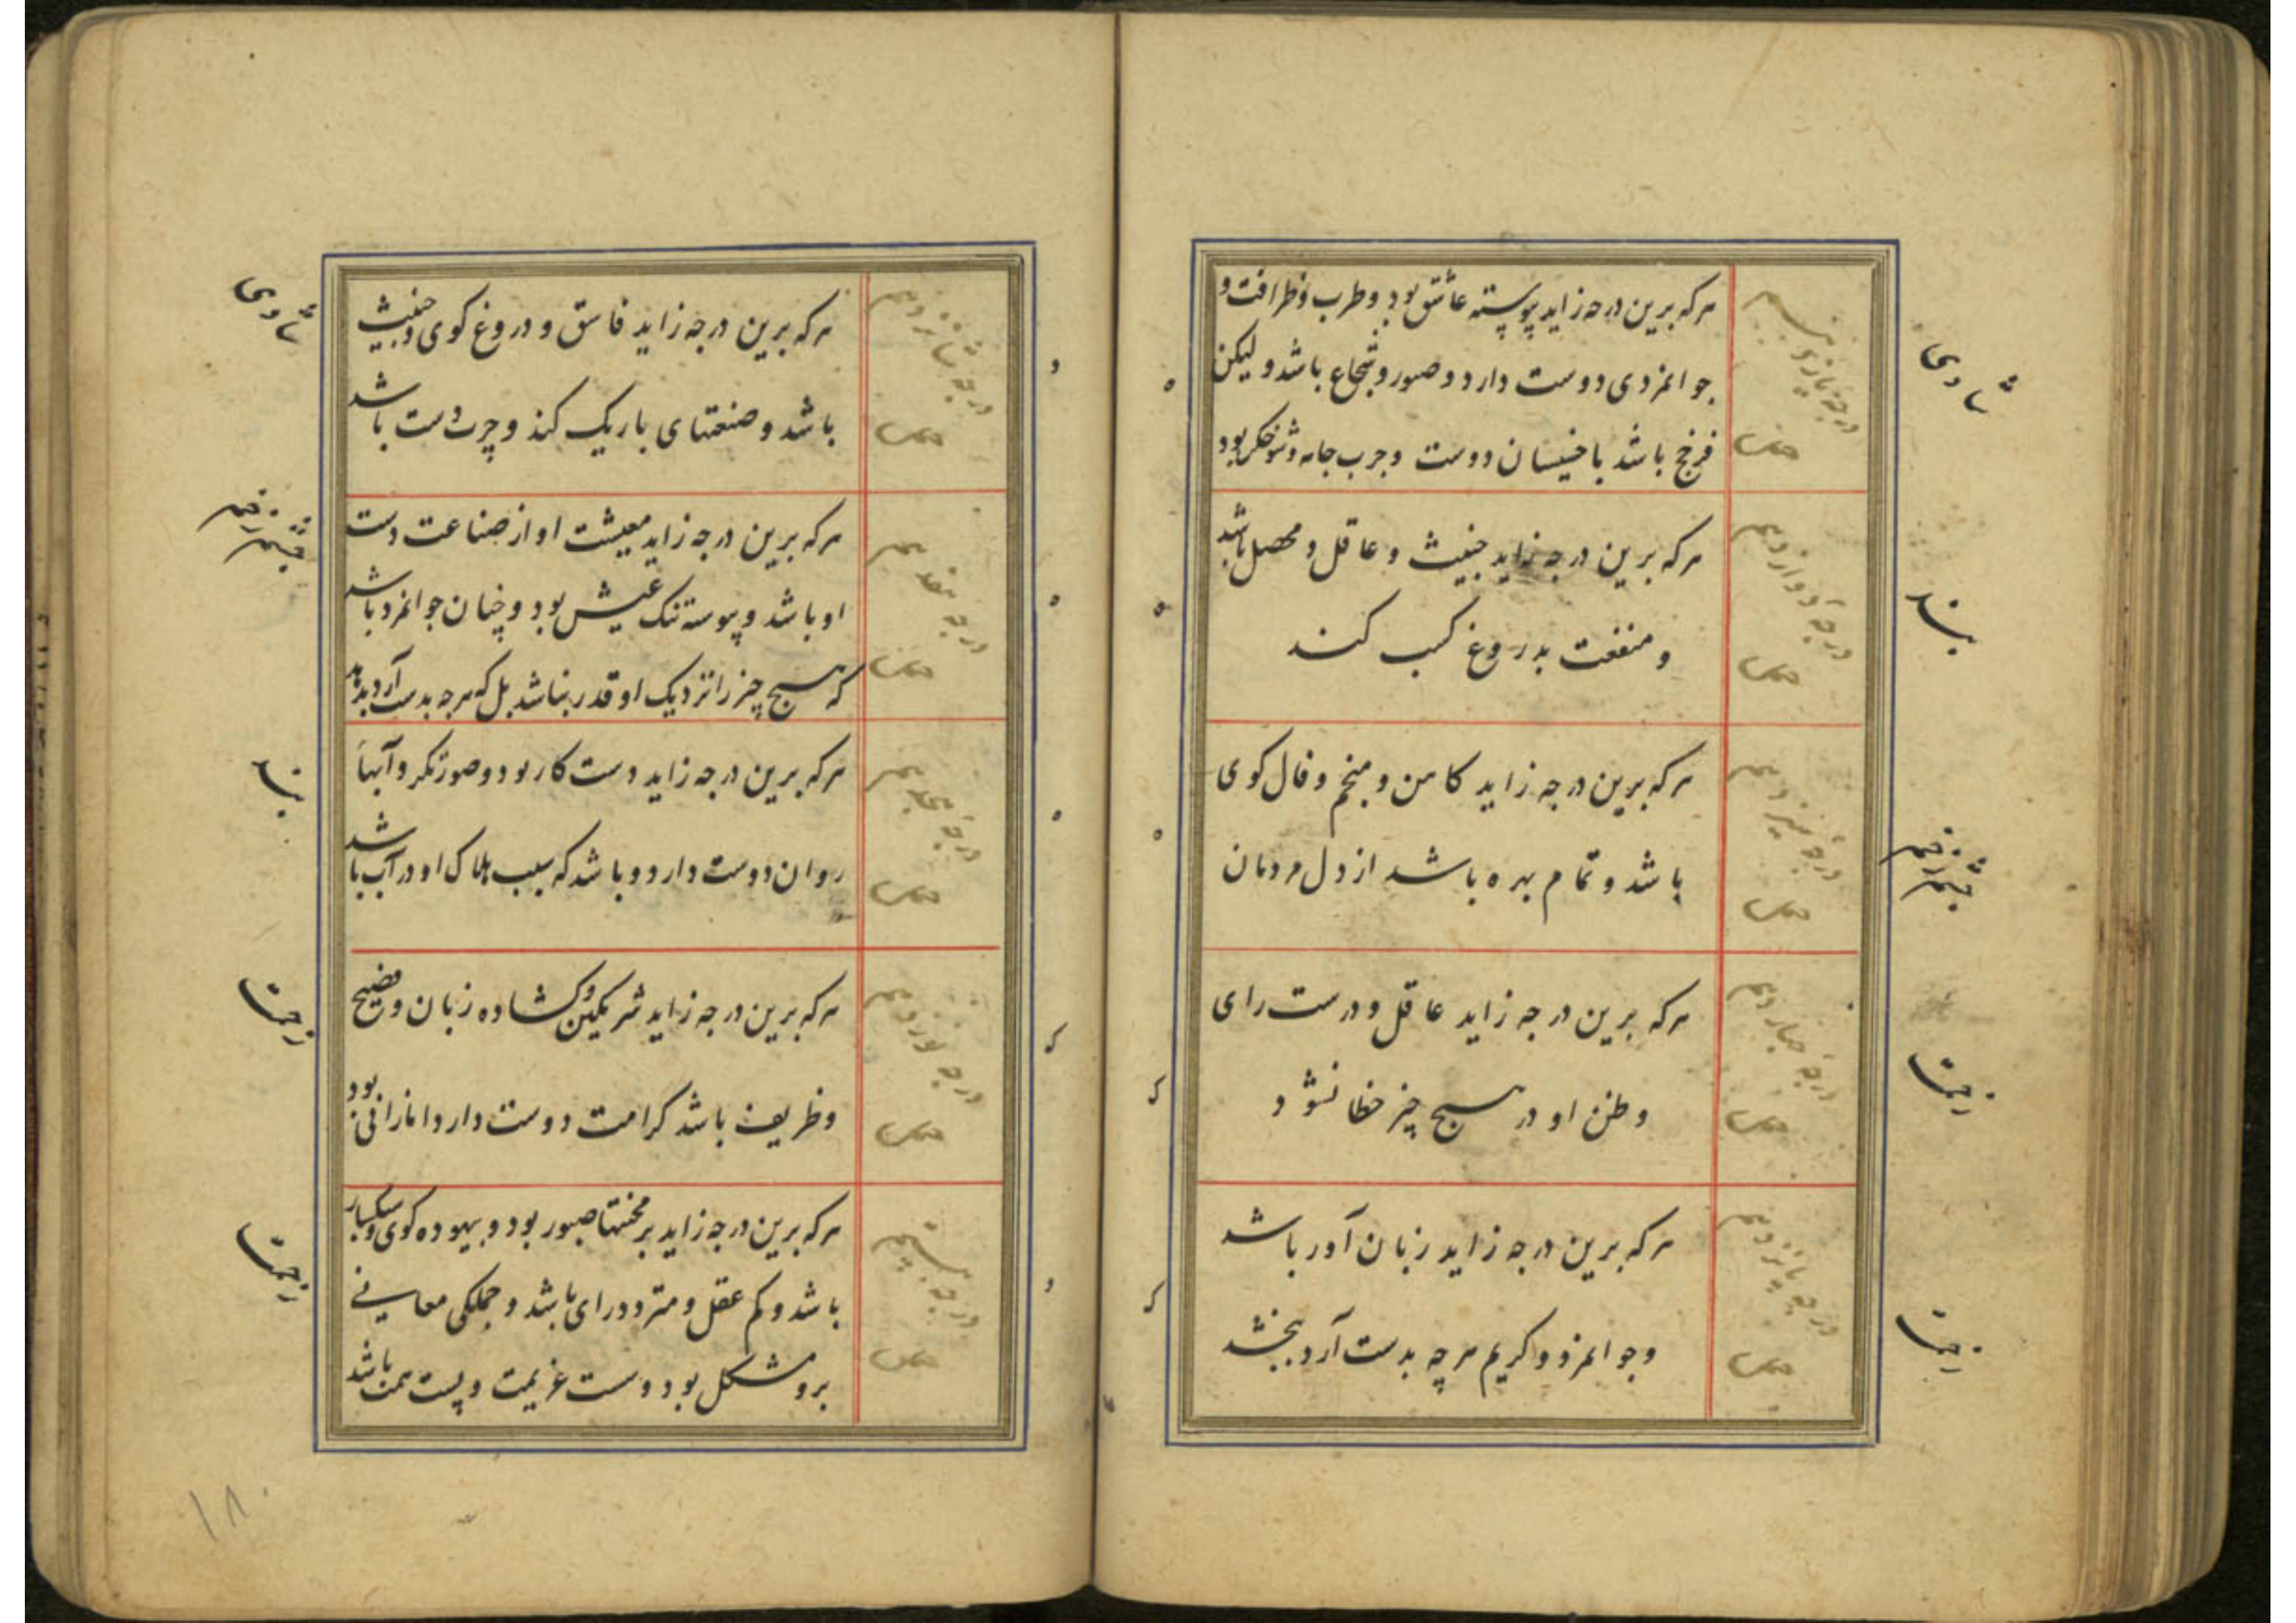 درجه یازدهم
هرکه برین درجه زاید پیوسته عاشق بود و طرب و ظرافت و
جوانمردی دوست دارد و صبور و شجاع باشد و لیکن
فرخج باشد با خسیسان دوست و چرب جامه و شوخکن بود
شادی
درجه دوازدهم
هرکه برین درجه زاید خبیث و عاقل و محصل باشد
و منفعت بدروغ کسب کند
درجه سیزدهم
هرکه برین درجه زاید کاهن و منجم و فال کوی
باشد و تمام بهره باشد از دل مردمان
درجه چهاردهم
هرکه برین درجه زاید عاقل و درست رای
و ظن او در هیچ چیز خطا نشود
درجه پانزدهم
هرکه برین درجه زاید زبان آور باشد
و جوانمرد و کریم هرچه بدست آرد ببخشد
درجه شانزدهم
هرکه برین درجه زاید فاسق و دروغ کوی و خبیث
باشد و صنعتهای باریک کند و چرب دست باشد
شادی
درجه هفدهم
هرکه برین درجه زاید معیشت او از صناعت دست
او باشد و پیوسته تنک عیش بود و چنان جوانمرد باشد
که هیچ چیز را نزدیک او قدر نباشد بل که هرچه بدست آرد بدهد
درجه هجدهم
هرکه برین درجه زاید دست کار بود و صورتکر و آبهاء
روان دوست دارد و باشد که سبب هلاک او در آب باشد
درجه نوزدهم
هرکه برین درجه زاید شرمکین و کشاده زبان و فصیح
و ظریف باشد کرامت دوست دارد اما زانی بود
درجه بیستم
هرکه برین درجه زاید بر محنتها صبور بود و بیهوده کوی و سبکسار
باشد و کم عقل و متردد رای باشد و جملکی معانی
برو مشکل بود و سست عزیمت و پست همت باشد
۱۸۰